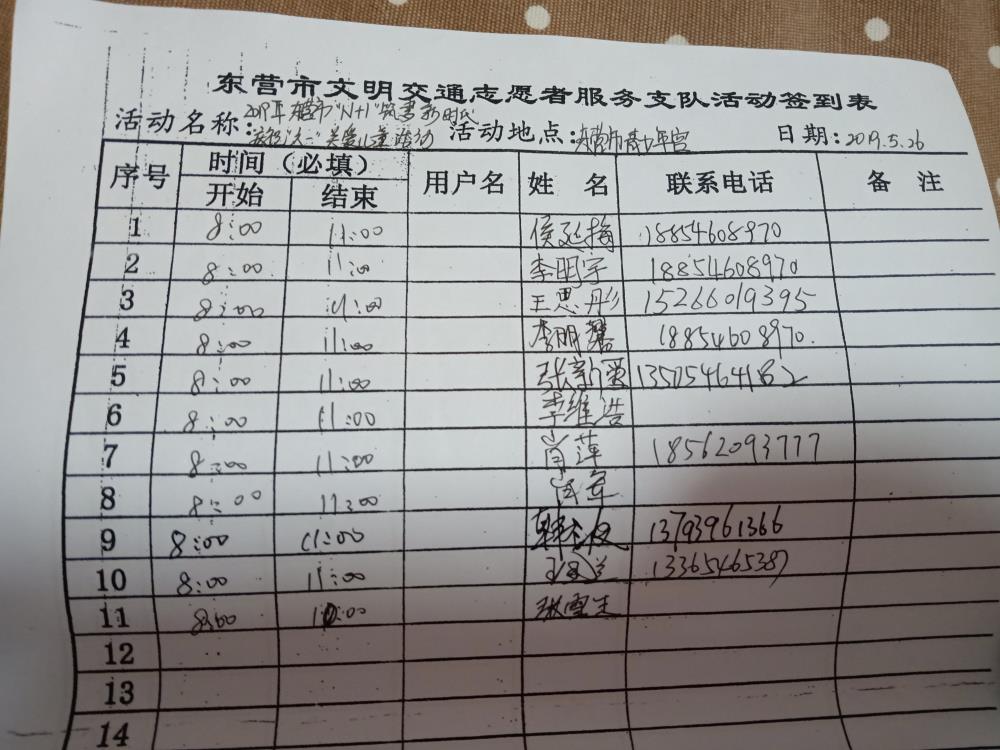 东营市文明交通志愿者服务支队活动签到表
活动名称: 2019年东营市"N+1"筑梦新时代 活动地点: 东营市青少年宫 日期: 2019.5.26
"六一"关爱儿童活动
序号 时间（必填） 用户名 姓 名 联系电话 备 注
开始 结束
1 8:00 11:00 侯延梅 18854608970
2 8:00 11:00 李明宇 18854608970
3 8:00 11:00 王思彤 15266019395
4 8:00 11:00 李明馨 18854608970.
5 8:00 11:00 张新爱 13505464182
6 8:00 11:00 李维浩
7 8:00 11:00 肖萍 18562093777
8 8:00 11:00
9 8:00 11:00 13793961366
10 8:00 11:00 13365465387
11 8:00 10:00 张雪生
12
13
14